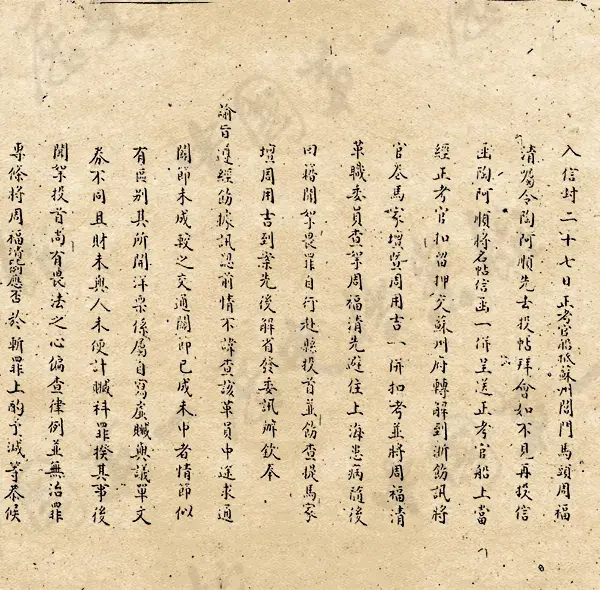 入信封二十七日正考官船抵蘇州閶門馬頭周福
清囑令陶阿順先去投帖拜會如不見再投信
函陶阿順將名帖信函一併呈送正考官船上當
經正考官扣留押交蘇州府轉解到浙飭訊將
官卷馬家壇暨周用吉一併扣考並將周福清
革職委員查拏周福清先避住上海患病隨後
回籍聞拏畏罪自行赴縣投首並飭查提馬家
壇周用吉到案先後解省發委訊辦欽奉
諭旨遵經飭據訊認前情不諱查該革員中途求通
關節未成較之交通關節已成未中者情節似
有區别其所開洋票係屬自寫虛贓與議單文
券不同且財未與人未便計贓科罪揆其事後
聞拏投首尚有畏法之心徧查律例並無治罪
專條將周福清應否於斬罪上酌予減等恭候